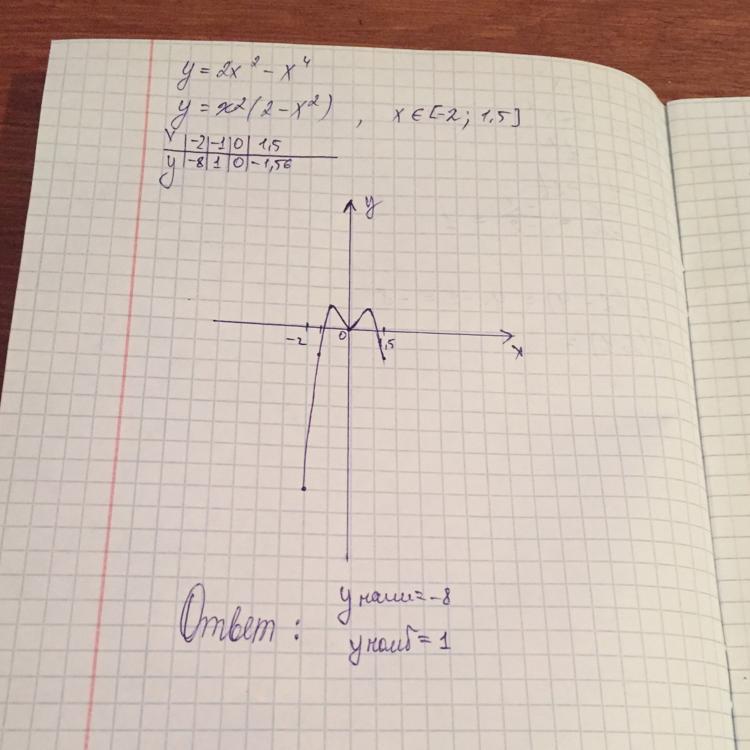 y = 2x² - x⁴
y = x²(2 - x²) , x ∈ [-2; 1,5]
x | -2 | -1 | 0 | 1,5
y | -8 | 1 | 0 | -1,56
y
-2 0 1,5
x
Ответ: y наим = -8
y наиб = 1